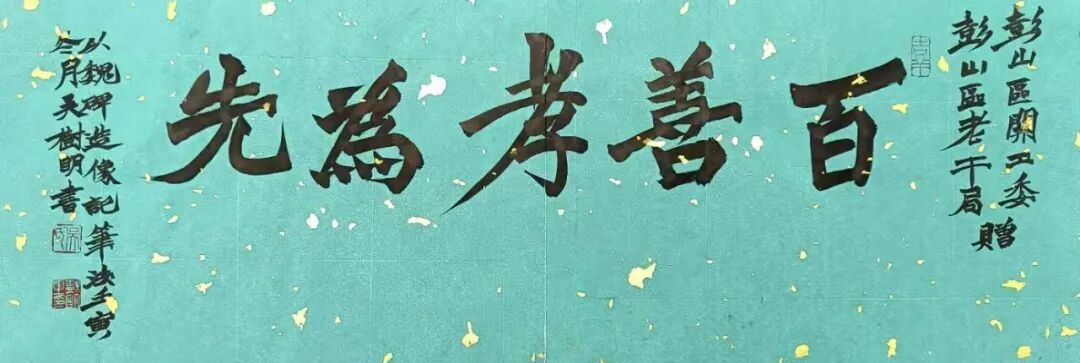 彭山區關工委
彭山區老干局
贈
百善孝為先
以魏碑造像記筆法壬寅
冬月吴樹明書